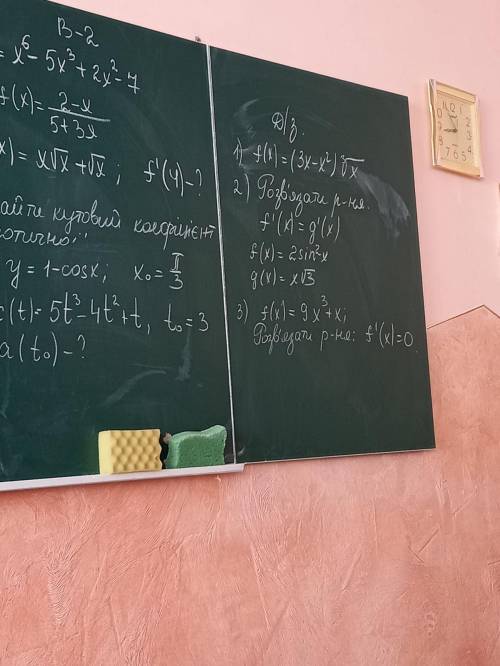 В-2
= x⁶ - 5x³ + 2x² - 7
f(x) = (2-x)/(5+3x)
x) = x√x + √x ; f'(4) - ?
айти кутовий коефіцієнт
отичної
y = 1 - cosx ; x₀ = π/3
(t) = 5t³ - 4t² + t, t₀ = 3
a(t₀) - ?
Д/з.
1) f(x) = (3x - x²) ∛x
2) Розв'язати р-ня.
f'(x) = g'(x)
f(x) = 2sin²x
g(x) = x√3
3) f(x) = 9x³ + x;
Розв'язати р-ня: f'(x) = 0